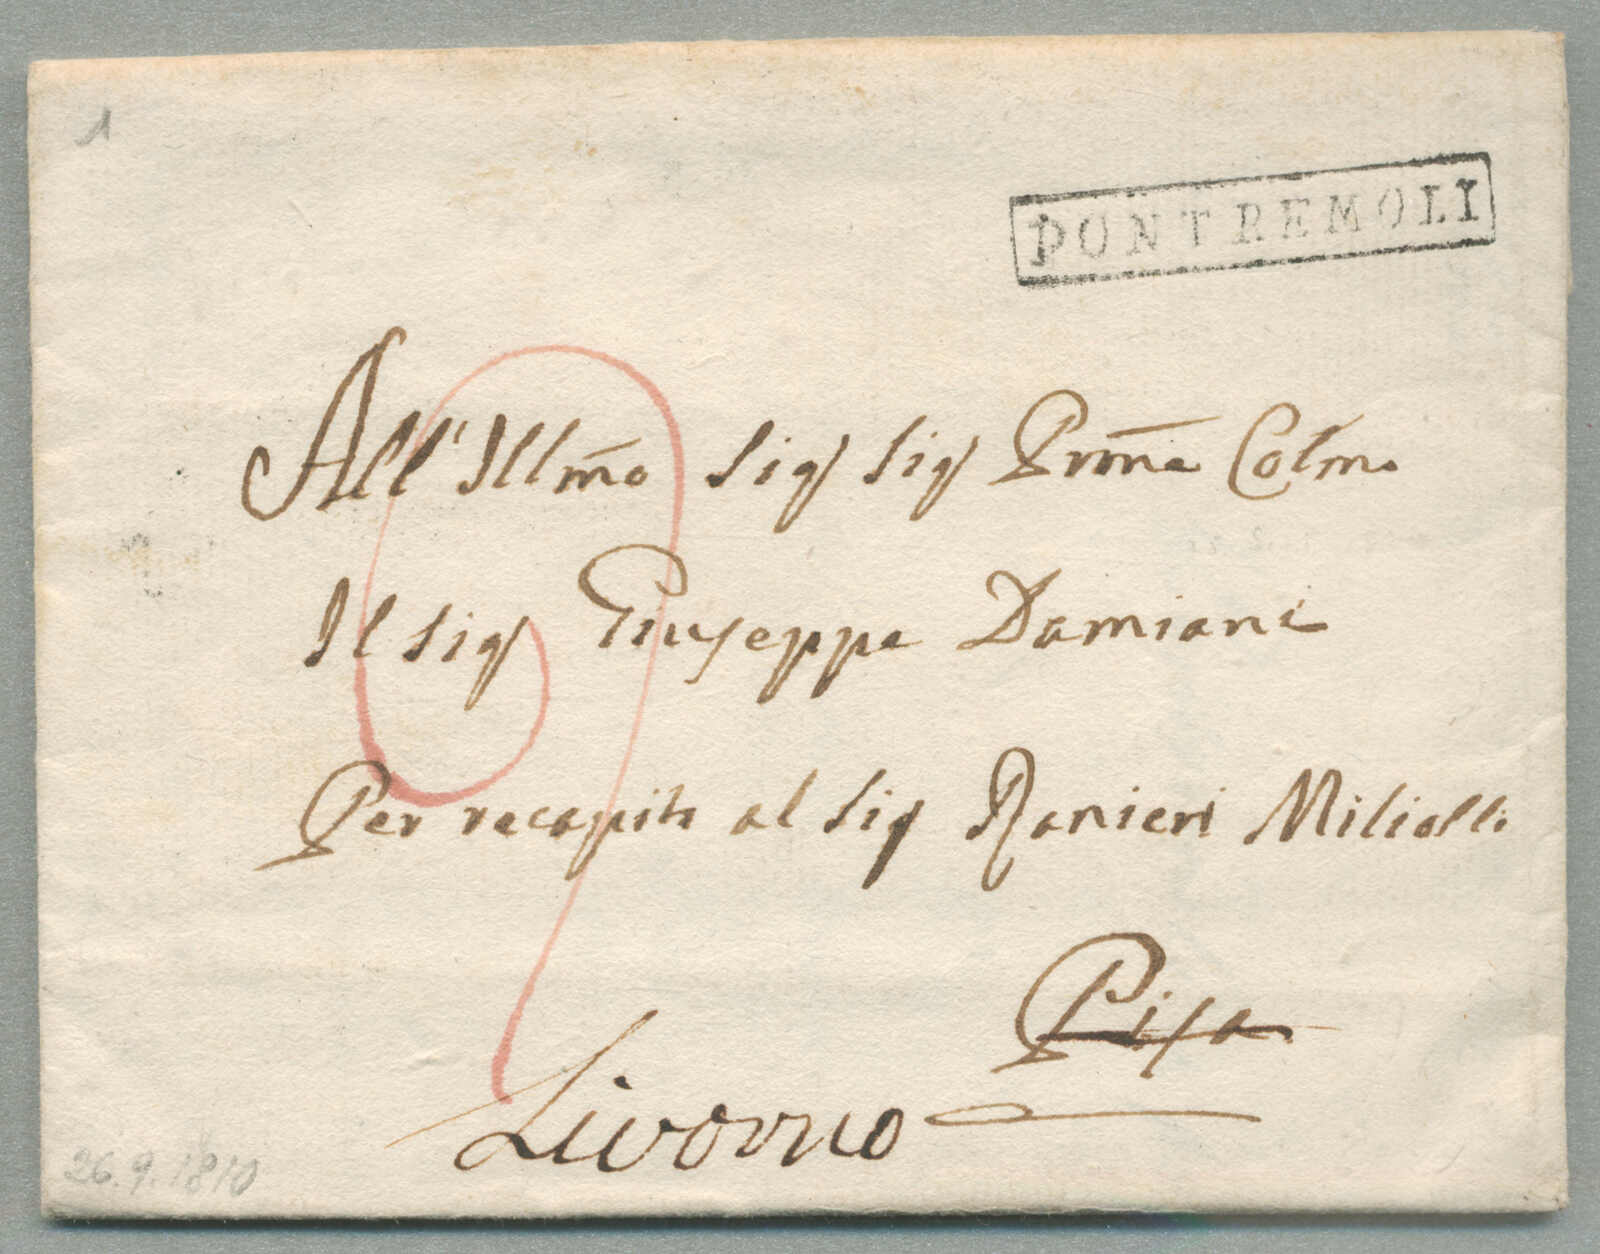 1
PONTREMOLI
All'Illmo Sig Sig Prone Colmo
Il Sig Giuseppe Damiani
Per recapito al Sig Ranieri Miliotti
Pisa
Livorno
26.9.1810